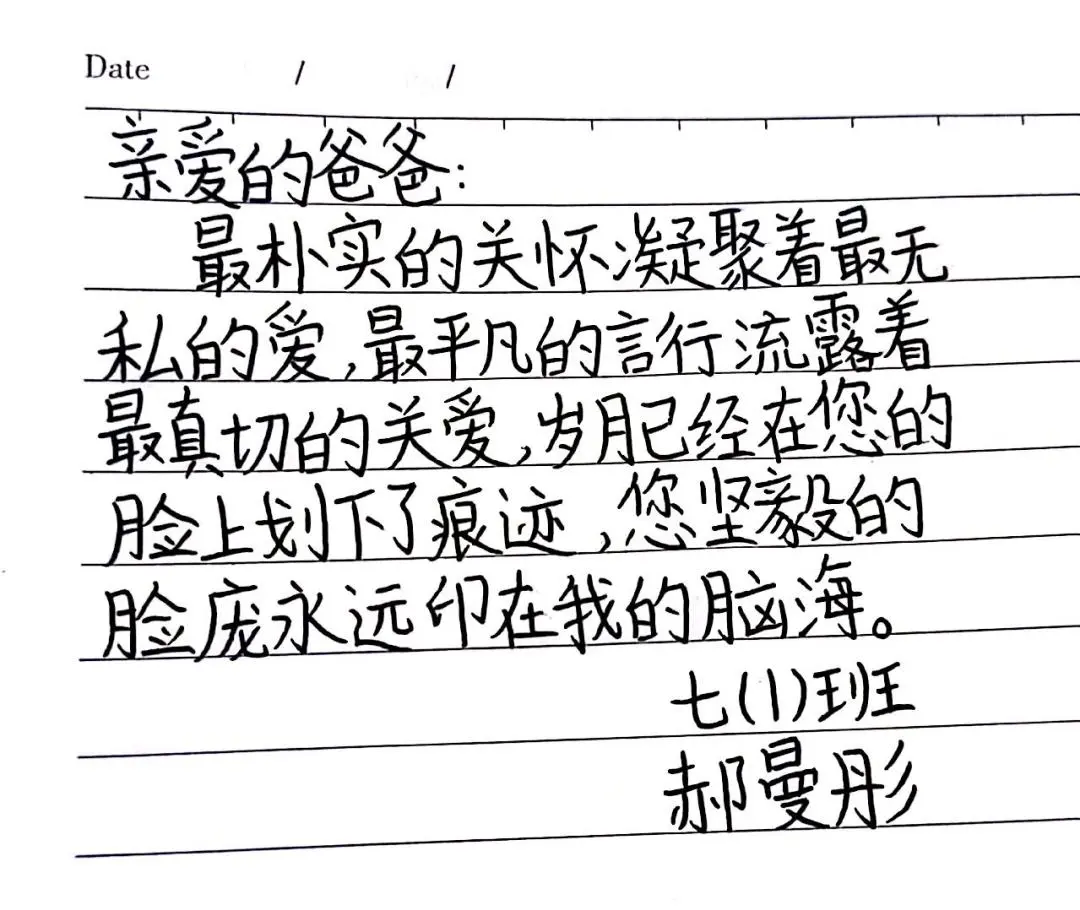 Date / /
亲爱的爸爸:
最朴实的关怀凝聚着最无
私的爱,最平凡的言行流露着
最真切的关爱,岁月已经在您的
脸上划下了痕迹,您坚毅的
脸庞永远印在我的脑海。
七(1)班
郝曼彤